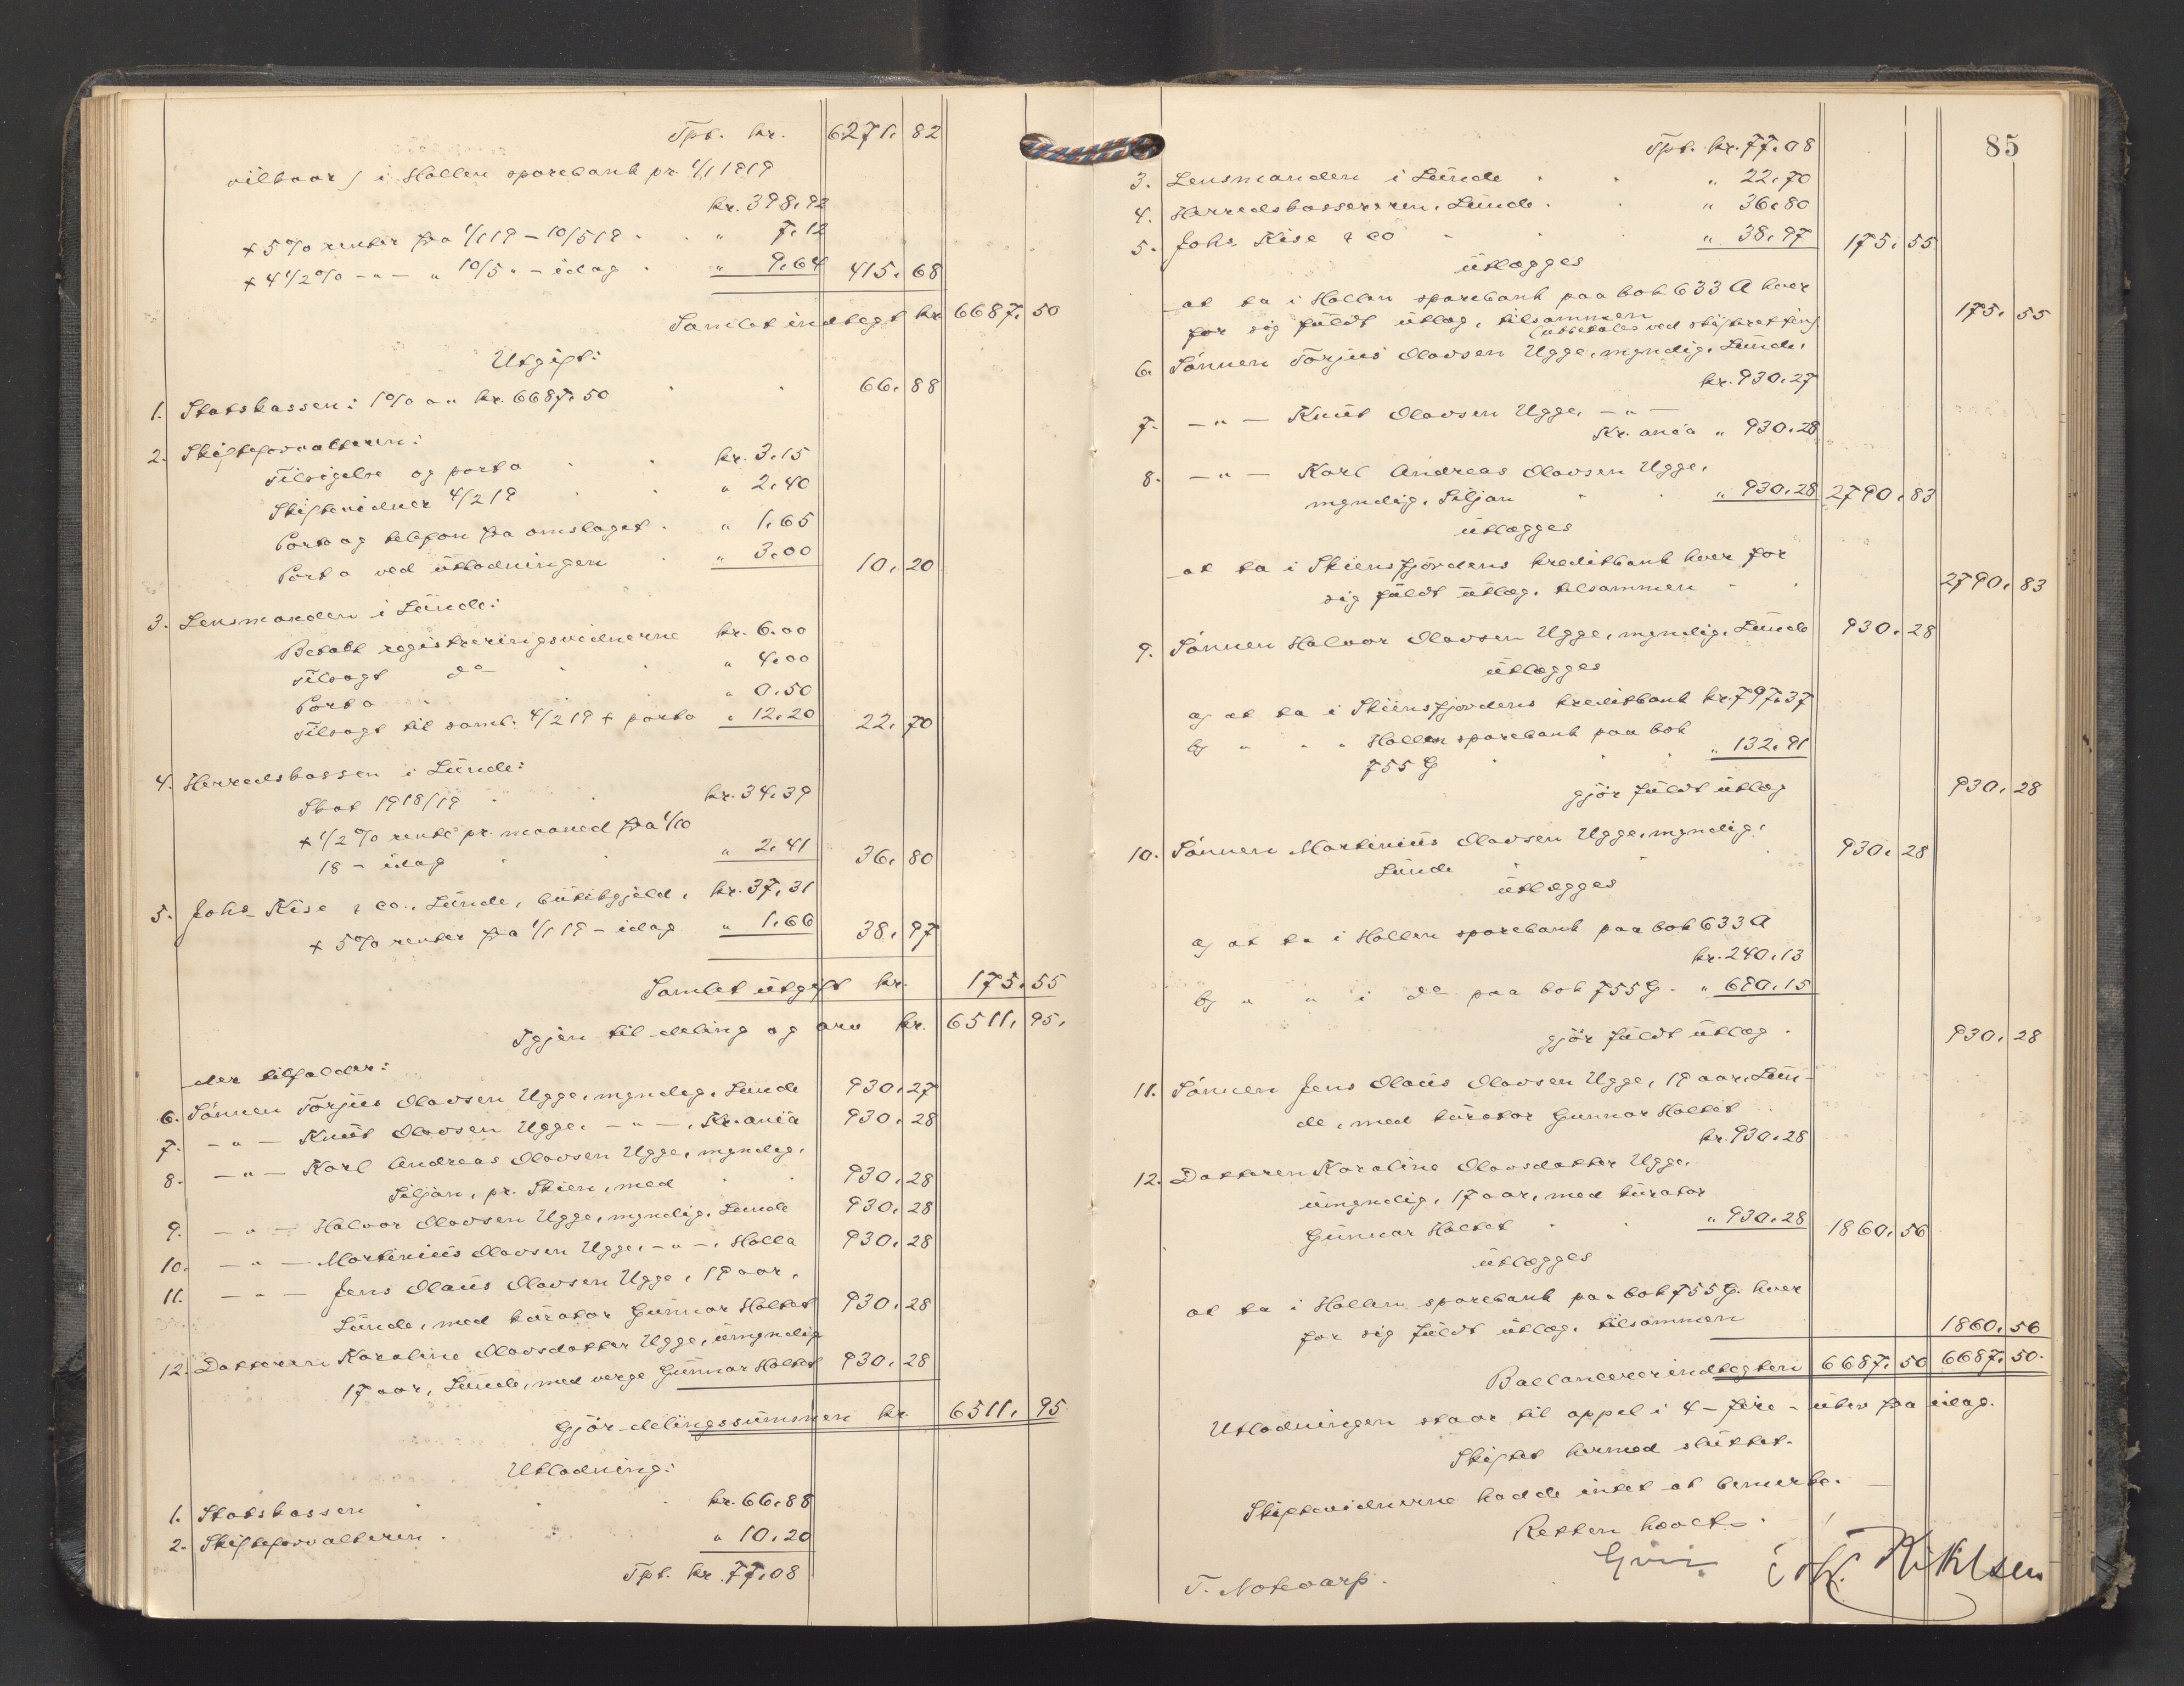 Tpt. kr. 6271. 82
vilkaar) i Hollen sparebank pr. 1/1 1919
kr. 398.92
+ 5% renter fra 1/1 19 - 10/5 19 . . " 7.12
+ 4 1/2% - " - " 10/5 " - idag . " 9.64 415. 68
Samlet indtegt kr. 6687. 50
Utgift:
1. Statskassen: 1% av kr. 6687.50 . . 66. 88
2. Skifteforvalteren:
Tilsigelse og porto . . kr. 3.15
Skiftevidner 4/2 19 . . " 2.40
Porto og telefon fra omslaget . " 1.65
Porto ved utlodningen . " 3.00 10. 20
3. Lensmanden i Lunde:
Betalt registreringsvidnerne kr. 6.00
Tilsagt do . . " 4.00
Porto . . " 0.50
Tilsagt til saml. 4/2 19 + porto " 12.20 22. 70
4. Herredskassen i Lunde:
Skat 1918/19 . . kr. 34.39
+ 1/2% rente pr. maaned fra 1/10
18 - idag . . " 2.41 36. 80
5. Johs. Kise & co., Lunde, butikgjeld, kr. 37.31
+ 5% renter fra 1/1 19 - idag " 1.66 38. 97
Samlet utgift kr. 175. 55
Igjen til deling og arv kr. 6511. 95.
der tilfalder:
6. Sønnen Torjus Olavsen Ugge, myndig, Lunde 930. 27
7. - " - Knut Olavsen Ugge, - " -, Kr.ania 930. 28
8. - " - Karl Andreas Olavsen Ugge, myndig,
Siljan, pr. Skien, med . . 930. 28
9. - " - Halvor Olavsen Ugge, myndig, Lunde 930. 28
10. - " - Martinius Olavsen Ugge, - " -, Holla 930. 28
11. - " - Jens Olaus Olavsen Ugge, 19 aar,
Lunde, med kurator Gunnar Holtet 930. 28
12. Datteren Karoline Olavsdatter Ugge, umyndig
17 aar, Lunde, med verge Gunnar Holtet 930. 28
Gjør delingssummen kr. 6511. 95.
Utlodning:
1. Statskassen . . . kr. 66.88
2. Skifteforvalteren . . " 10.20
Tpt. kr. 77.08
85
Tpt. kr. 77.08
3. Lensmanden i Lunde . . " 22.70
4. Herredskassereren, Lunde . . " 36.80
5. Johs. Kise & co . . " 38.97 175. 55
utlægges
at ta i Hollen sparebank paa bok 633 A hver
for sig fuldt utlæg, tilsammen 175. 55
(utbetales ved skifteretten)
6. Sønnen Torjus Olavsen Ugge, myndig, Lunde,
kr. 930.27
7. - " - Knut Olavsen Ugge, - " -
Kr.ania " 930.28
8. - " - Karl Andreas Olavsen Ugge,
myndig, Siljan . . " 930.28 2790. 83
utlægges
at ta i Skiensfjordens kreditbank hver for
sig fuldt utlæg, tilsammen . . 2790. 83
9. Sønnen Halvor Olavsen Ugge, myndig, Lunde 930. 28
utlægges
a) at ta i Skiensfjordens kreditbank kr. 797.37
b) " " " Hollen sparebank paa bok
755 G . . " 132.91
gjør fuldt utlæg 930. 28
10. Sønnen Martinius Olavsen Ugge, myndig,
Lunde . . 930. 28
utlægges
a) at ta i Hollen sparebank paa bok 633 A
kr. 240.13
b) " " i do paa bok 755 G . " 690.15
gjør fuldt utlæg . 930. 28
11. Sønnen Jens Olaus Olavsen Ugge, 19 aar, Lun-
de, med kurator Gunnar Holtet
kr. 930.28
12. Datteren Karoline Olavsdatter Ugge,
umyndig, 17 aar, med kurator
Gunnar Holtet . . " 930.28 1860. 56
utlægges
at ta i Hollen sparebank paa bok 755 G. hver
for sig fuldt utlæg, tilsammen 1860. 56
Ballancerer indtegten 6687. 50 6687. 50.
Utlodningen staar til appel i 4 - fire - uker fra idag.
Skiftet hermed sluttet.
Skiftevidnerne hadde intet at bemerke.
Retten hævet.
T. Notevarp.